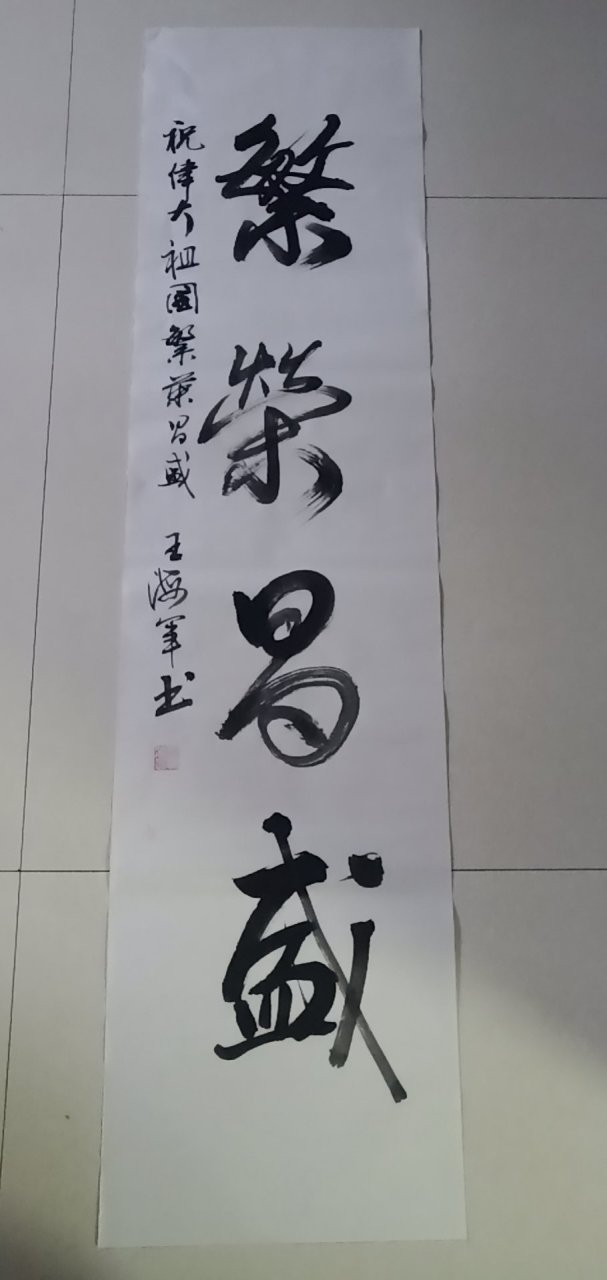 繁榮昌盛
祝偉大祖國繁榮昌盛 王海军书